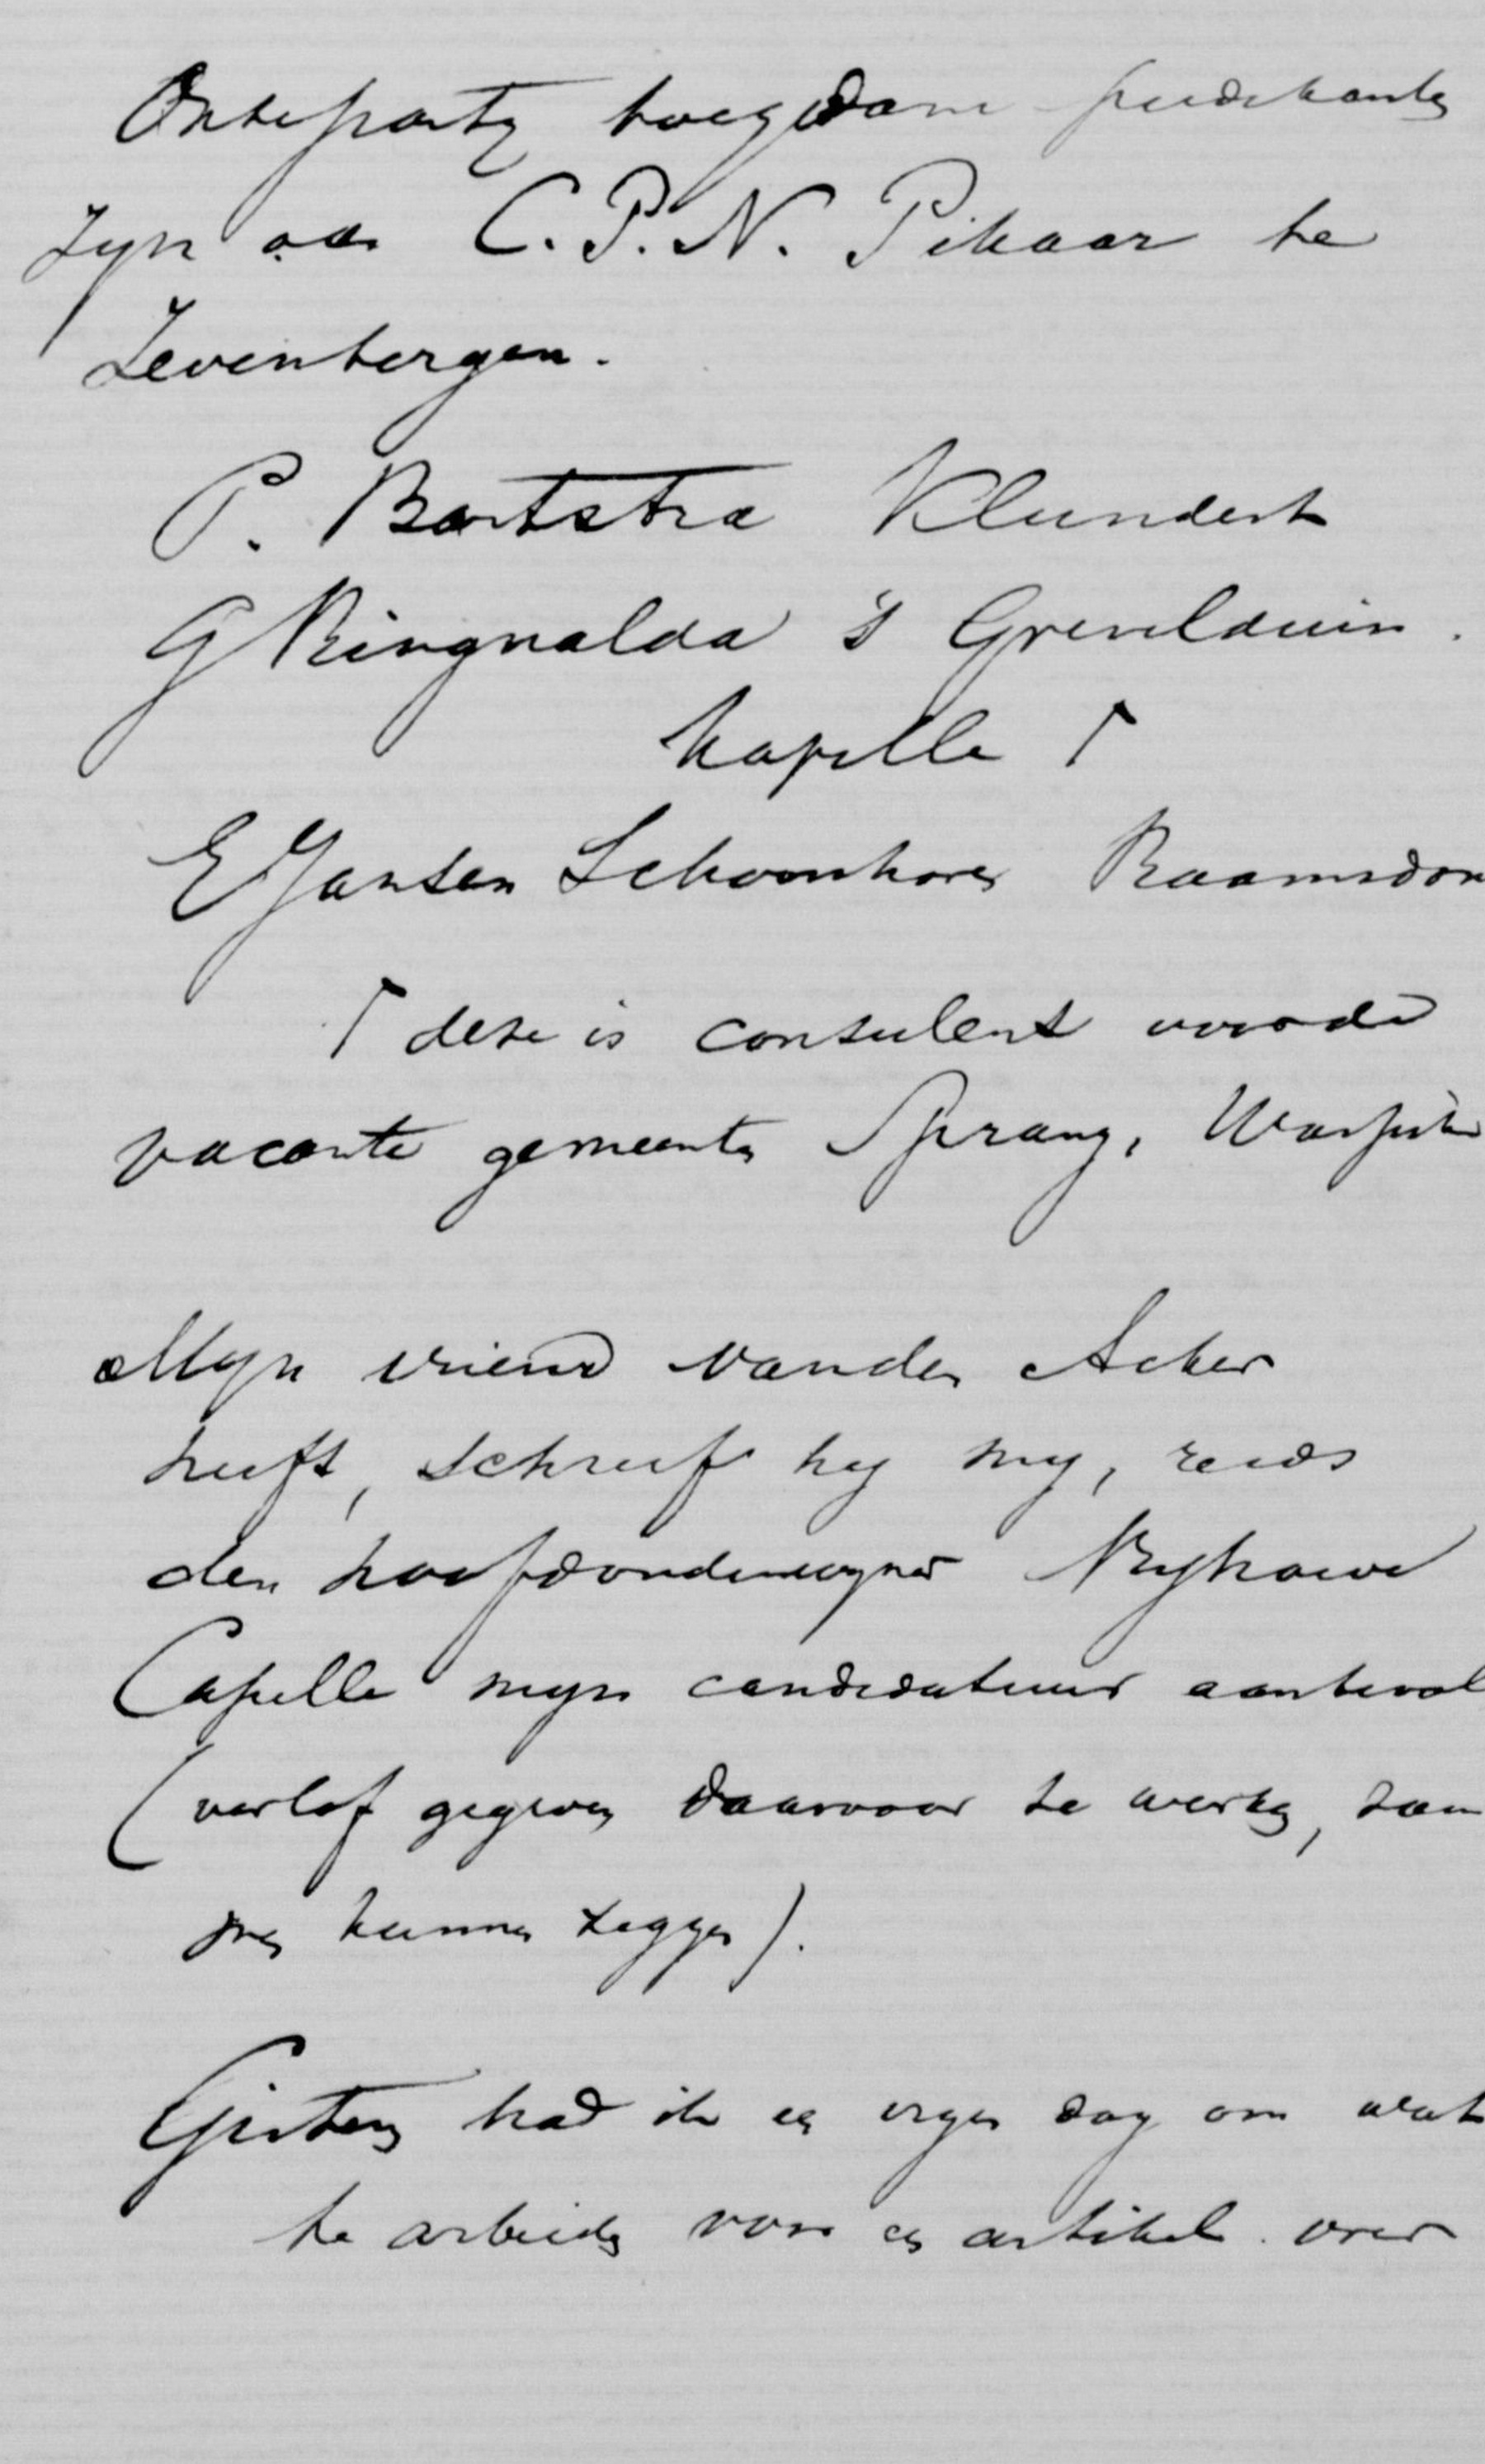 Onze party toegedane predikanten
zyn o.a. C. P. N. Pikaar te
Zevenbergen.
P. Bartstra Klundert
G Ringnalda 's Grevelduin.
kapelle ↑
E Jansen Schoonhoven Raamsdon
↑ deze is consulent voor de
vacante gemeenten Sprang, Waspik
Myn vriend van den Acker
heeft, schreef hy my, reeds
den hoofdonderwyzer Nyhowe
Capelle myn candidatuur aanbevol
(verlof gegeven daarvoor te werken, zou
men kunnen zeggen).
Gisteren had ik een eigen dag om wat
te arbeiden voor een artikel over